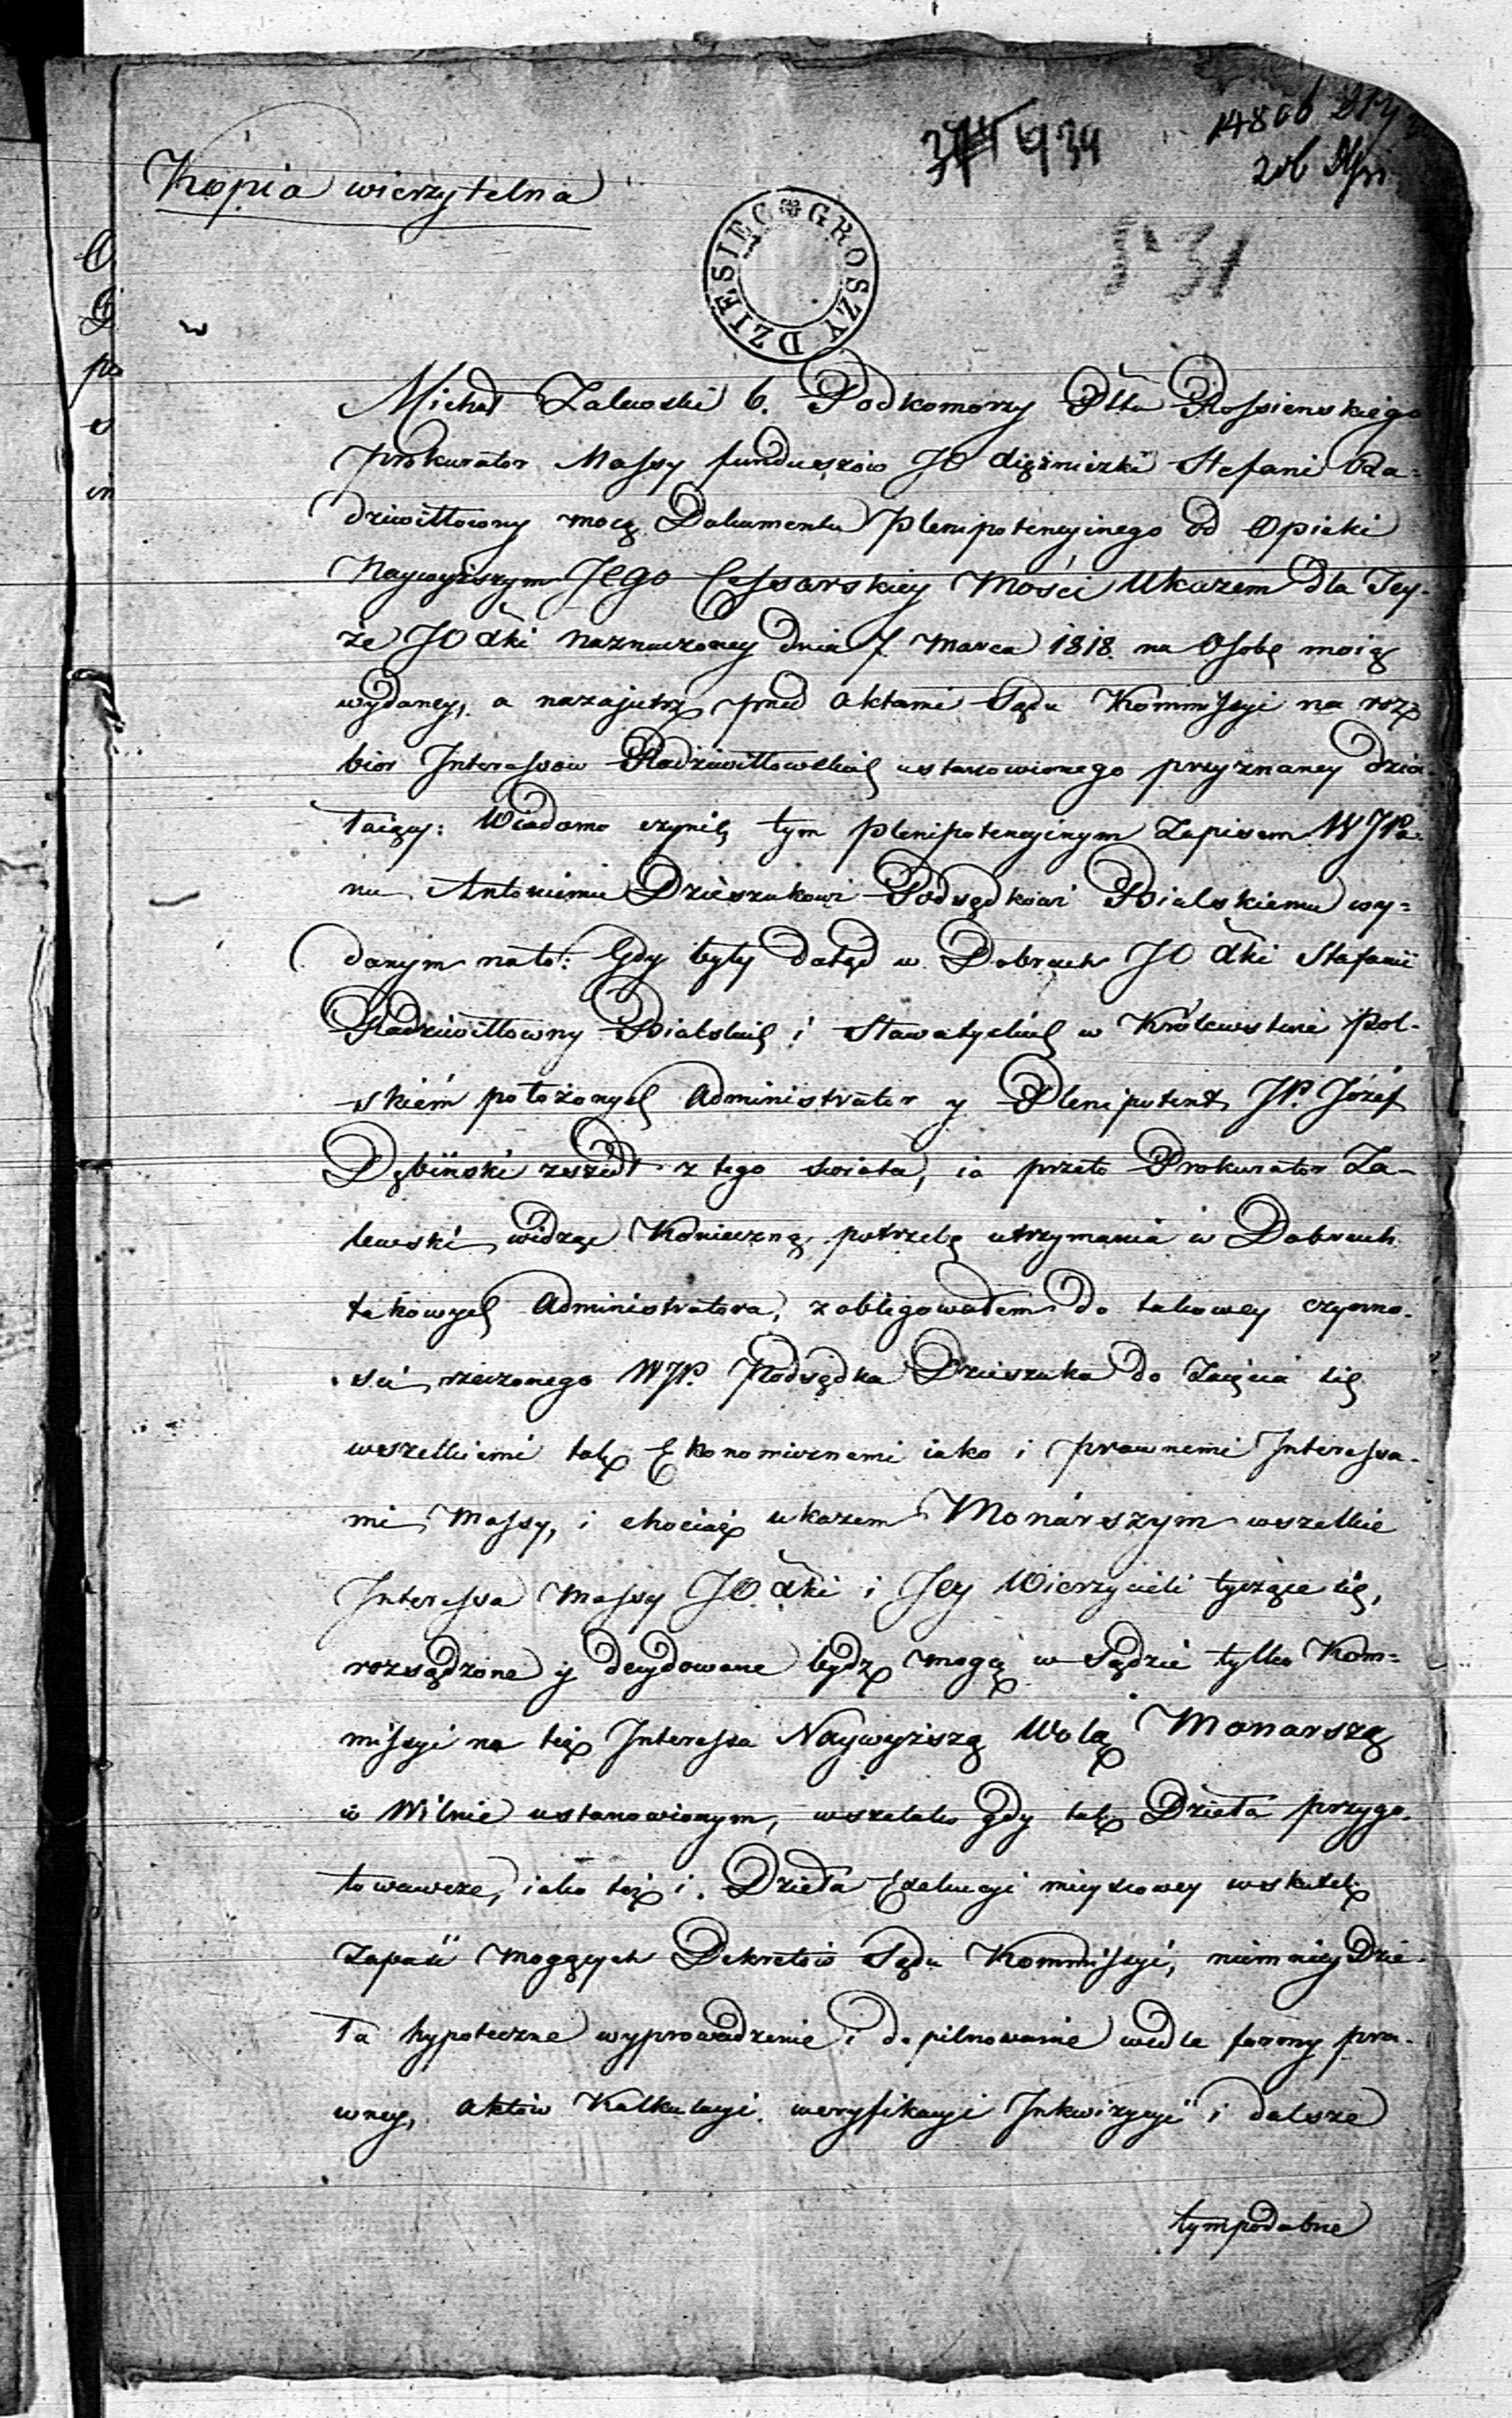 Kopia wierzytelna
939
DZIESIĘC GROSZY
Michał Zalewski b. Podkomorzy Pttu Rossienskiego
prokurator Massy funduszów JO Xiężniczki Stefani Ra=
dziwiłłowny mocą Dokumentu Plenipotencyinego od Opieki
Naywyższym JEgo Cessarskiey Mości Ukazem dla Tey-
że JO Xki naznaczoney dnia 7. Marca 1818. na Osobę moią
wydaney, a nazajutrz przed Aktami Sądu Kommissyi na roz
bior Interessow Radziwiłłowskich ustanowionego przyznaney dzia-
łaiący: Wiadomo czynię tym plenipotencyinym Zapisem WJPa-
nu Antoniemu Dzieszukowi Podsędkowi Bialskiemu wy=
danym na to: Gdy były dotąd w Dobrach JO Xki Stefanii
Radziwiłłowny Bialskich i Sławatyckich w Królewstwie Pol-
skiém położonych Administrator y Plenipotent JP. Józef
Dębiński zszedł z tego świata, ia przeto Prokurator Za-
lewski widząc Konieczną potrzebę utrzymania w Dobrach
takowych Administratora, zobligowałem do takowey czynno-
ści rzeczonego WJP. Podsędka Dzieszuka do Zaięcia się
wszelkiemi tak Ekonomicznemi iako i prawnemi Interessa-
mi Massy, i chociaż ukazem Monárszym wszelkie
Interessa Massy JO. Xki i Jey Wierzycieli tyczące się,
rozsądzone y decydowane bydź mogą w Sądzie tylko Kom=
missyi na też Interessa Naywyższą Wolą Monarszą
w Wilnie ustanowionym, wszelako gdy tak Dzieła przygo-
towawcze, iako też i. Dzieła Exekucyi mieyscowey wskutek
Zapaść mogących Dekretów Sądu Kommissyi, niemniey Dzie-
ła hypoteczne wyprowadzenie i dopilnowanie wedle formy pra-
wney, Aktów Kalkulacyi weryfikacyi Inkwizycyi i dalsze
tympodobne